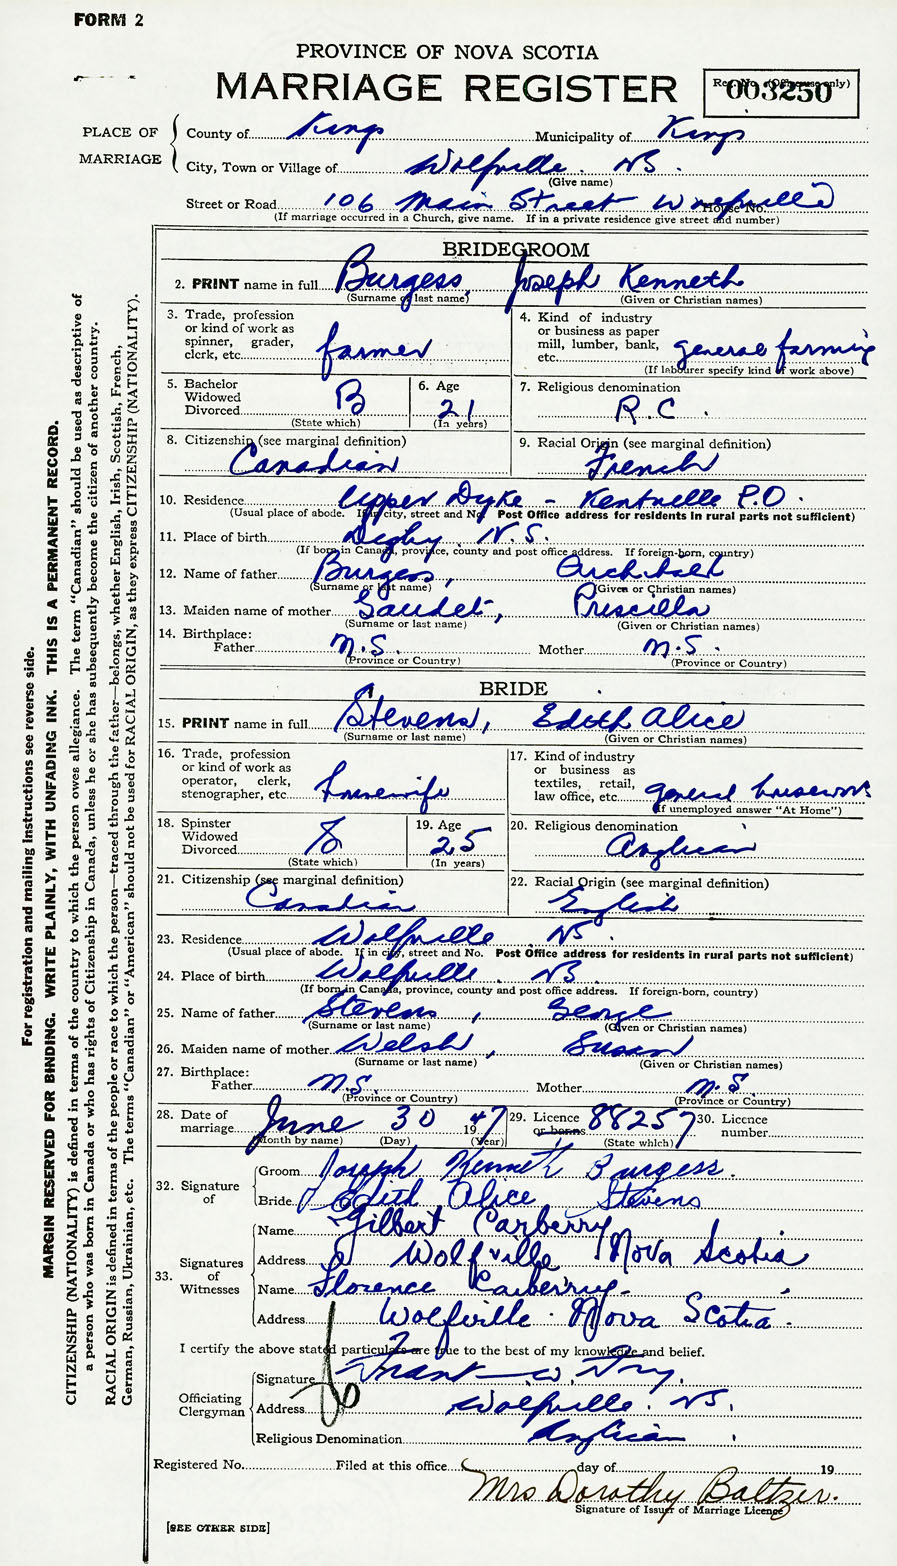 FORM 2
PROVINCE OF NOVA SCOTIA
MARRIAGE REGISTER
Reg. No. (Office use only)
003250
PLACE OF MARRIAGE
County of Kings Municipality of Kings
City, Town or Village of Wolfville. NS.
(Give name)
Street or Road 106 Main Street Wolfville House No.
(If marriage occurred in a Church, give name. If in a private residence give street and number)
BRIDEGROOM
2. PRINT name in full Burgess, Joseph Kenneth
(Surname or last name) (Given or Christian names)
3. Trade, profession or kind of work as spinner, grader, clerk, etc. farmer
4. Kind of industry or business as paper mill, lumber, bank, etc. general farming
(If labourer specify kind of work above)
5. Bachelor Widowed Divorced B
(State which)
6. Age 21
(In years)
7. Religious denomination
R.C.
8. Citizenship (see marginal definition)
Canadian
9. Racial Origin (see marginal definition)
French
10. Residence Upper Dyke - Kentville P.O.
(Usual place of abode. If in city, street and No. Post Office address for residents in rural parts not sufficient)
11. Place of birth Digby. N.S.
(If born in Canada, province, county and post office address. If foreign-born, country)
12. Name of father Burgess, Archibald
(Surname or last name) (Given or Christian names)
13. Maiden name of mother Gaudet, Priscilla
(Surname or last name) (Given or Christian names)
14. Birthplace:
Father N.S. Mother N.S.
(Province or Country) (Province or Country)
BRIDE
15. PRINT name in full Stevens, Edith Alice
(Surname or last name) (Given or Christian names)
16. Trade, profession or kind of work as operator, clerk, stenographer, etc. housewife
17. Kind of industry or business as textiles, retail, law office, etc. general housework
(If unemployed answer "At Home")
18. Spinster Widowed Divorced S
(State which)
19. Age 25
(In years)
20. Religious denomination
Anglican
21. Citizenship (see marginal definition)
Canadian
22. Racial Origin (see marginal definition)
English
23. Residence Wolfville NS.
(Usual place of abode. If in city, street and No. Post Office address for residents in rural parts not sufficient)
24. Place of birth Wolfville. NS.
(If born in Canada, province, county and post office address. If foreign-born, country)
25. Name of father Stevens, George
(Surname or last name) (Given or Christian names)
26. Maiden name of mother Welsh, Susan
(Surname or last name) (Given or Christian names)
27. Birthplace:
Father N.S. Mother N.S.
(Province or Country) (Province or Country)
28. Date of marriage June 30 1947
(Month by name) (Day) (Year)
29. Licence or banns 88257
(State which)
30. Licence number
32. Signature of
Groom Joseph Kenneth Burgess.
Bride Edith Alice Stevens
33. Signatures of Witnesses
Name Gilbert Carberry
Address Wolfville Nova Scotia
Name Florence Carberry.
Address Wolfville. Nova Scotia.
I certify the above stated particulars are true to the best of my knowledge and belief.
Officiating Clergyman
Signature W.
Address Wolfville. NS.
Religious Denomination Anglican
Registered No. Filed at this office day of 19
Mrs Dorothy Baltzer.
Signature of Issuer of Marriage Licence
[SEE OTHER SIDE]
For registration and mailing instructions see reverse side.
MARGIN RESERVED FOR BINDING. WRITE PLAINLY, WITH UNFADING INK. THIS IS A PERMANENT RECORD.
CITIZENSHIP (NATIONALITY) is defined in terms of the country to which the person owes allegiance. The term "Canadian" should be used as descriptive of
a person who was born in Canada or who has rights of Citizenship in Canada, unless he or she has subsequently become the citizen of another country.
RACIAL ORIGIN is defined in terms of the people or race to which the person—traced through the father—belongs, whether English, Irish, Scottish, French,
German, Russian, Ukrainian, etc. The terms "Canadian" or "American" should not be used for RACIAL ORIGIN, as they express CITIZENSHIP (NATIONALITY).